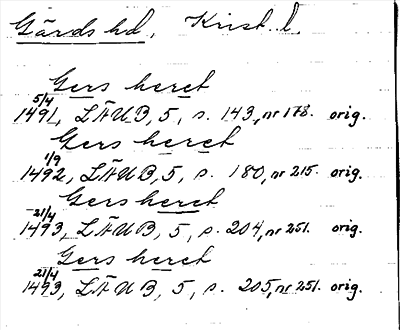 Gärds hd, Krist. l.
Gers heret
5/4
1491, LÄUB, 5, s. 143, nr 178. orig.
Gers heret
1/9
1492, LÄUB, 5, s. 180, nr 215. orig.
Gers heret
21/4
1493, LÄUB, 5, s. 204, nr 251. orig.
Gers heret
21/4
1493, LÄUB, 5, s. 205, nr 251. orig.